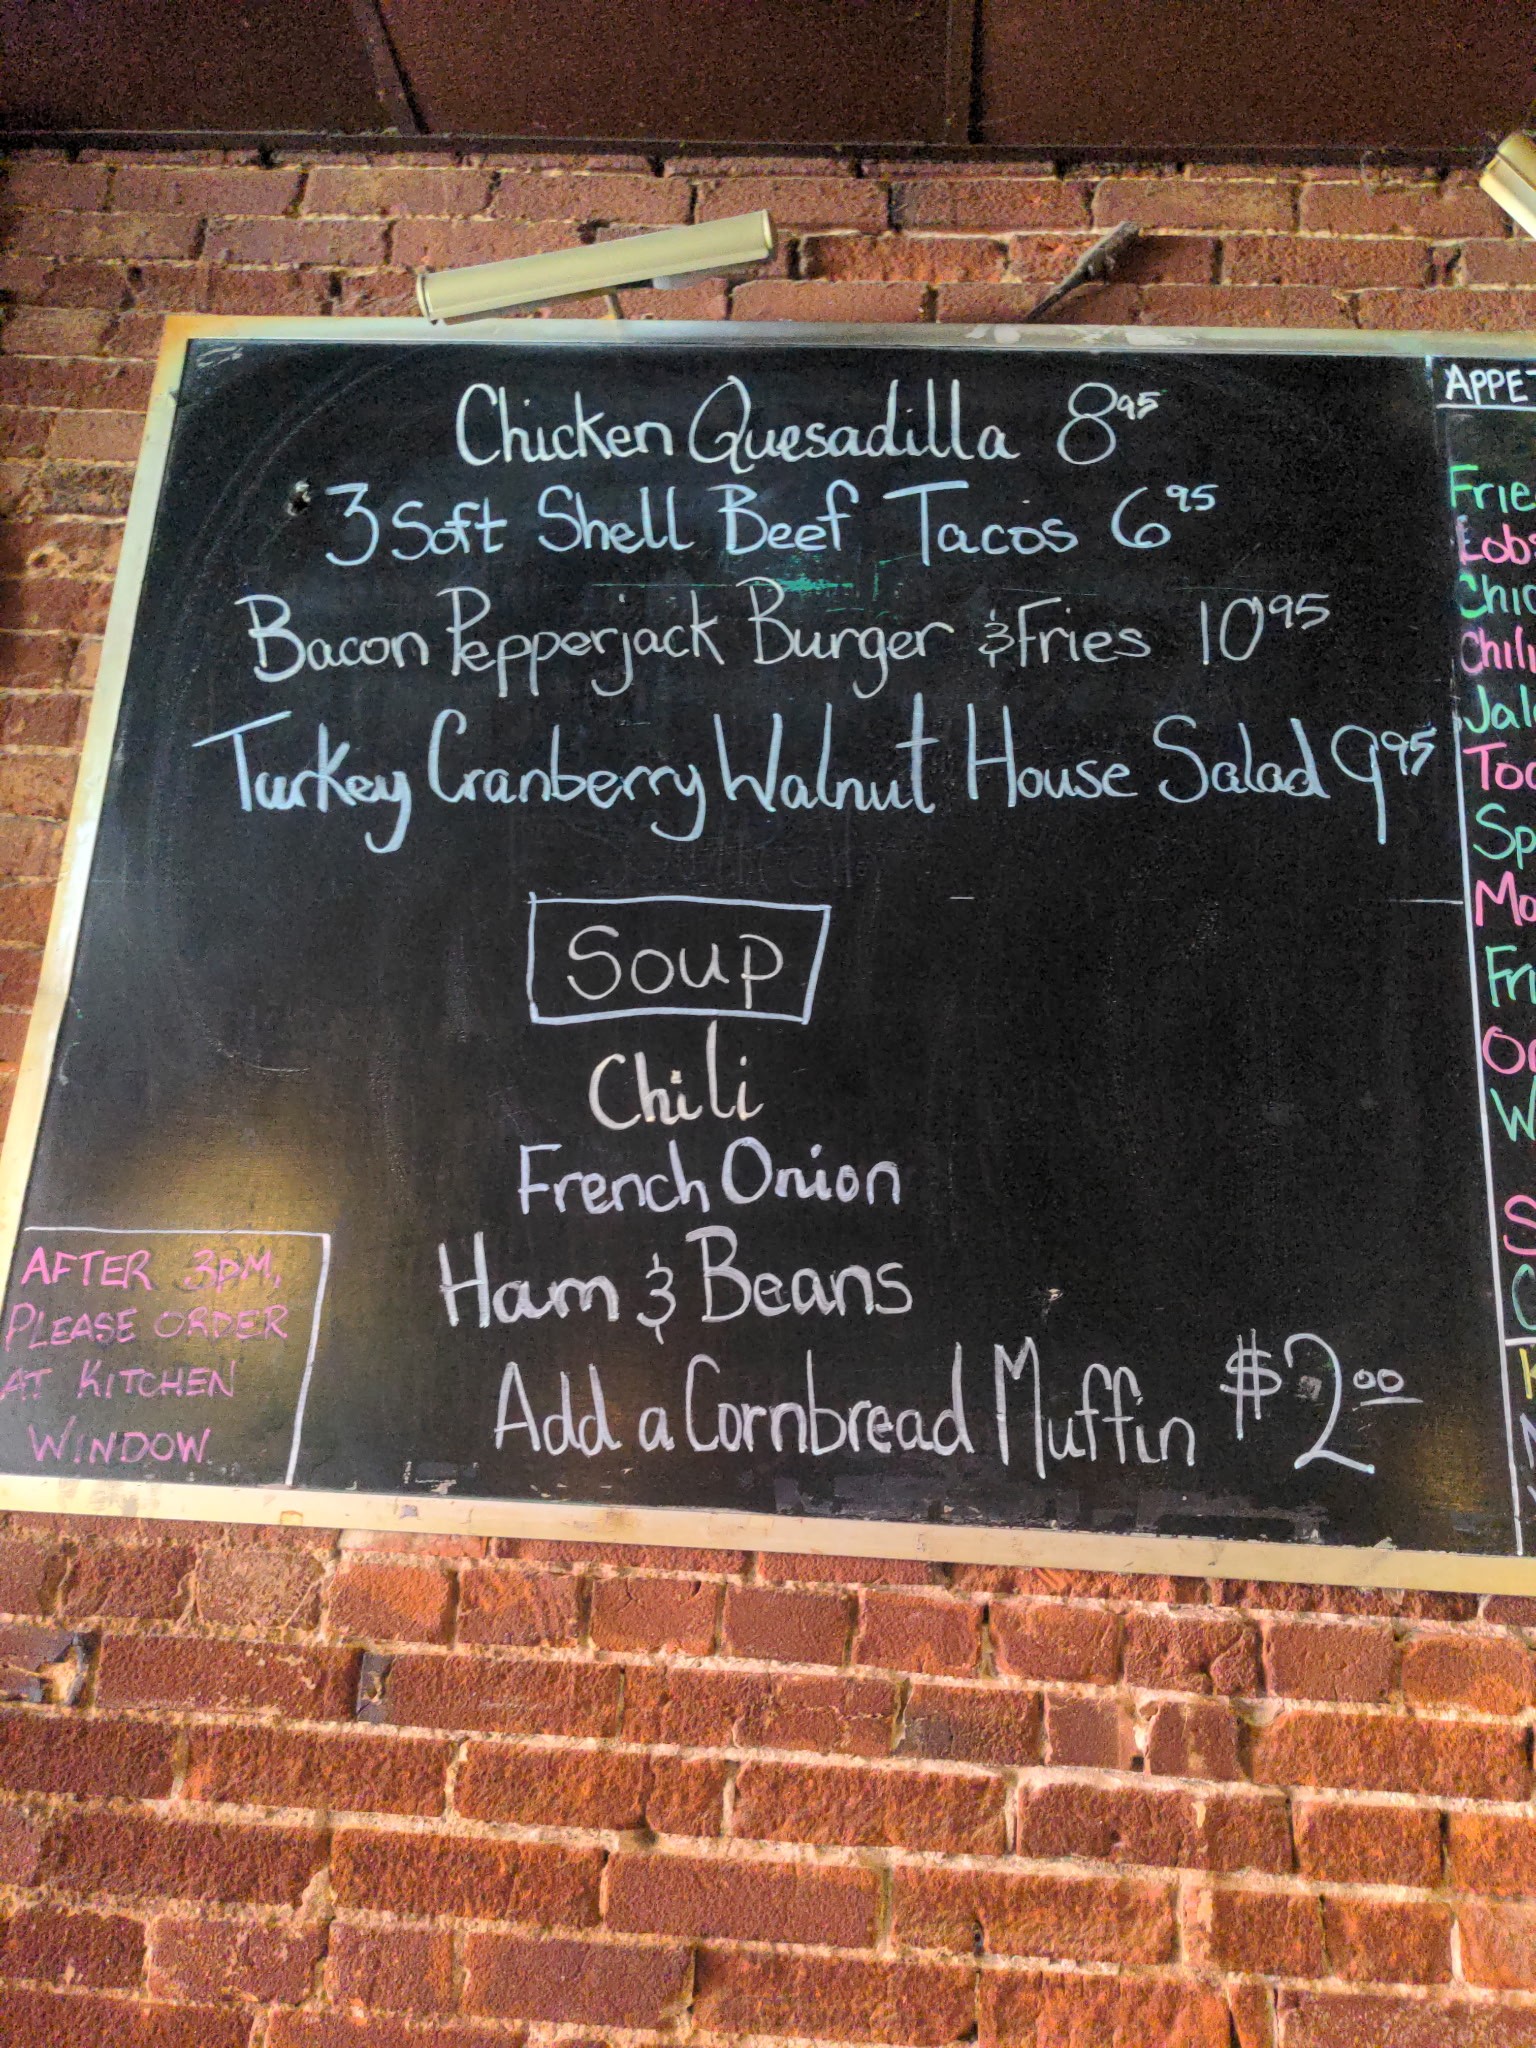 Chicken Quesadilla 8⁹⁵
3 Soft Shell Beef Tacos 6⁹⁵
Bacon Pepperjack Burger & Fries 10⁹⁵
Turkey Cranberry Walnut House Salad 9⁹⁵
Soup
Chili
French Onion
Ham & Beans
Add a Cornbread Muffin $2⁰⁰
AFTER 3PM,
PLEASE ORDER
AT KITCHEN
WINDOW
Chili